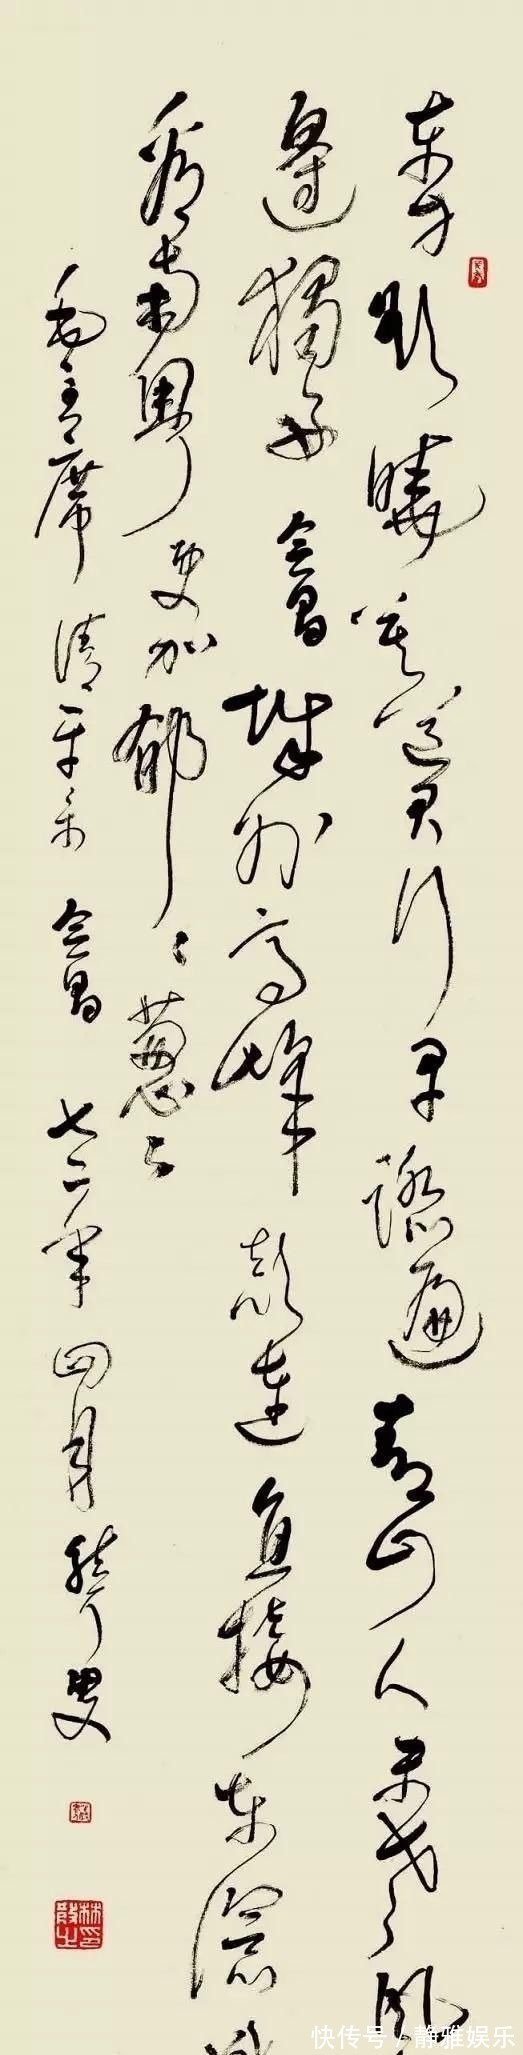 東方欲曉莫道君行早踏遍青山人未老風
邊獨好會昌城外高峰顛連直接東溟
看南粤更加郁〻葱〻
毛主席清平樂會昌七二年四月聾叟
林散之印
快传号 / 静雅娱乐